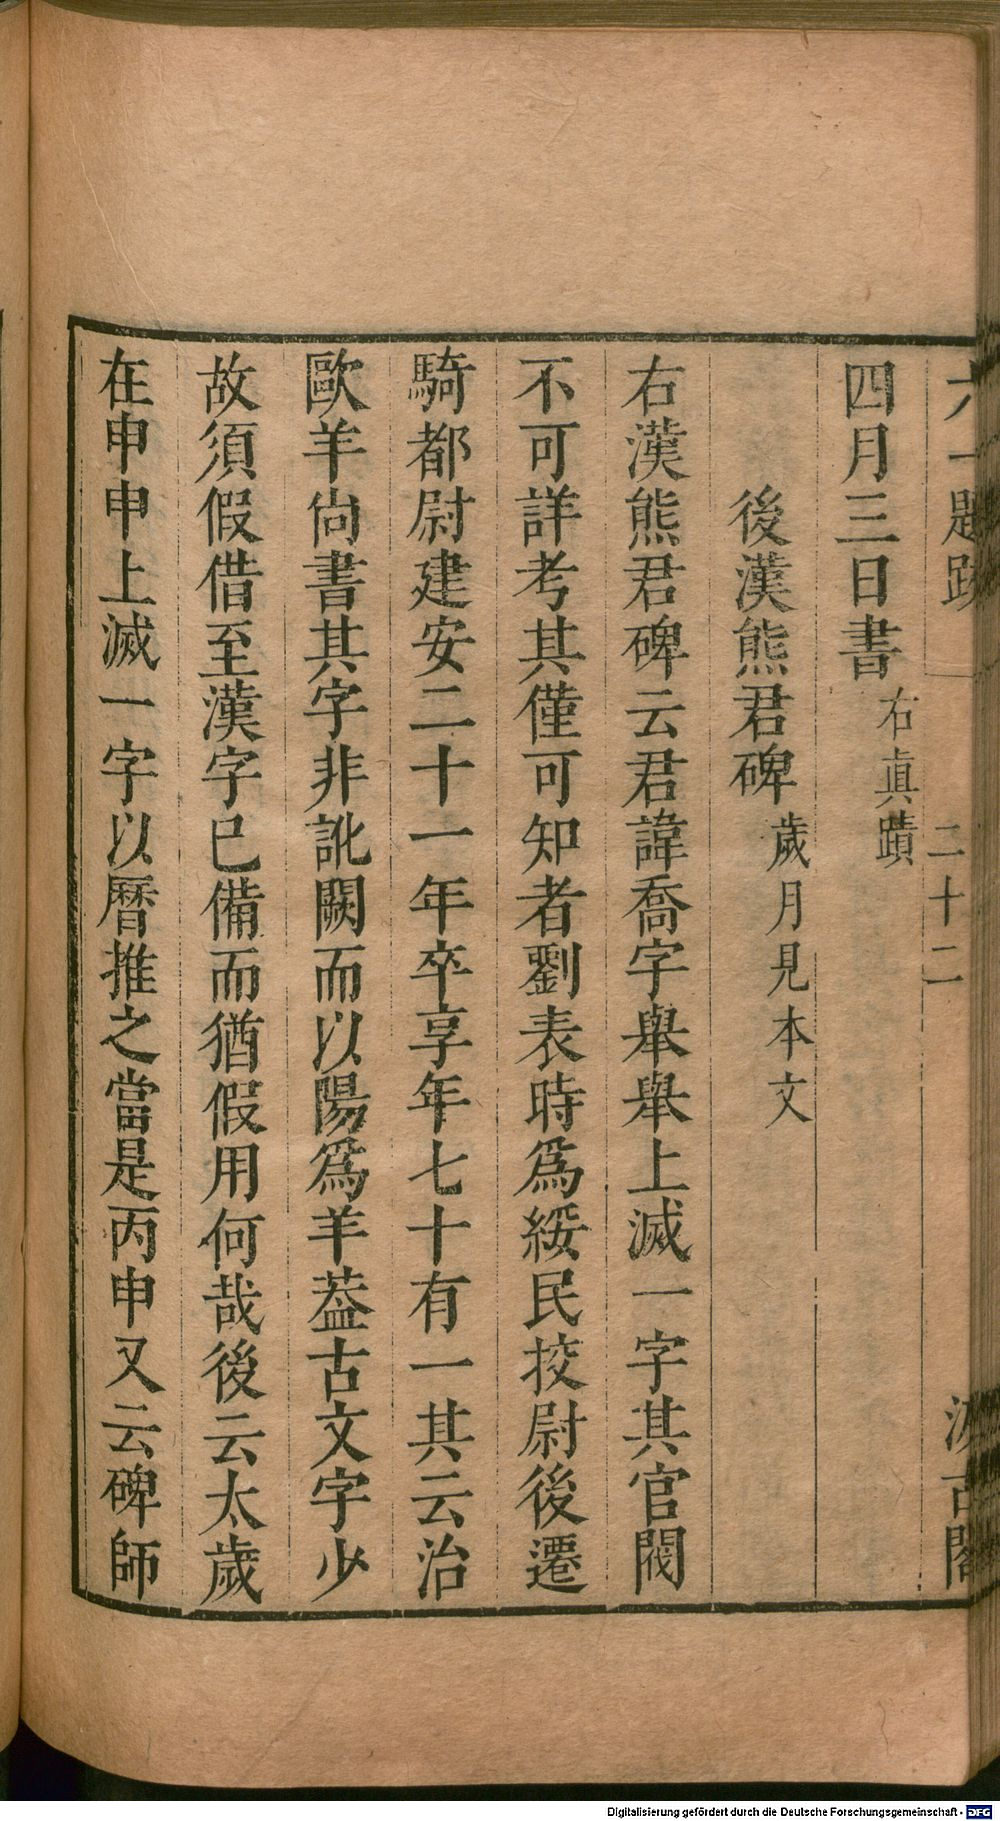 六一題跋 二十二 汲古閣
四月三日書 右眞蹟
後漢熊君碑 歲月見本文
右漢熊君碑云君諱喬字舉舉上滅一字其官閥
不可詳考其僅可知者劉表時爲綏民挍尉後遷
騎都尉建安二十一年卒享年七十有一其云治
歐羊尙書其字非訛闕而以陽爲羊葢古文字少
故須假借至漢字已備而猶假用何哉後云太歲
在申申上滅一字以曆推之當是丙申又云碑師
Digitalisierung gefördert durch die Deutsche Forschungsgemeinschaft - DFG